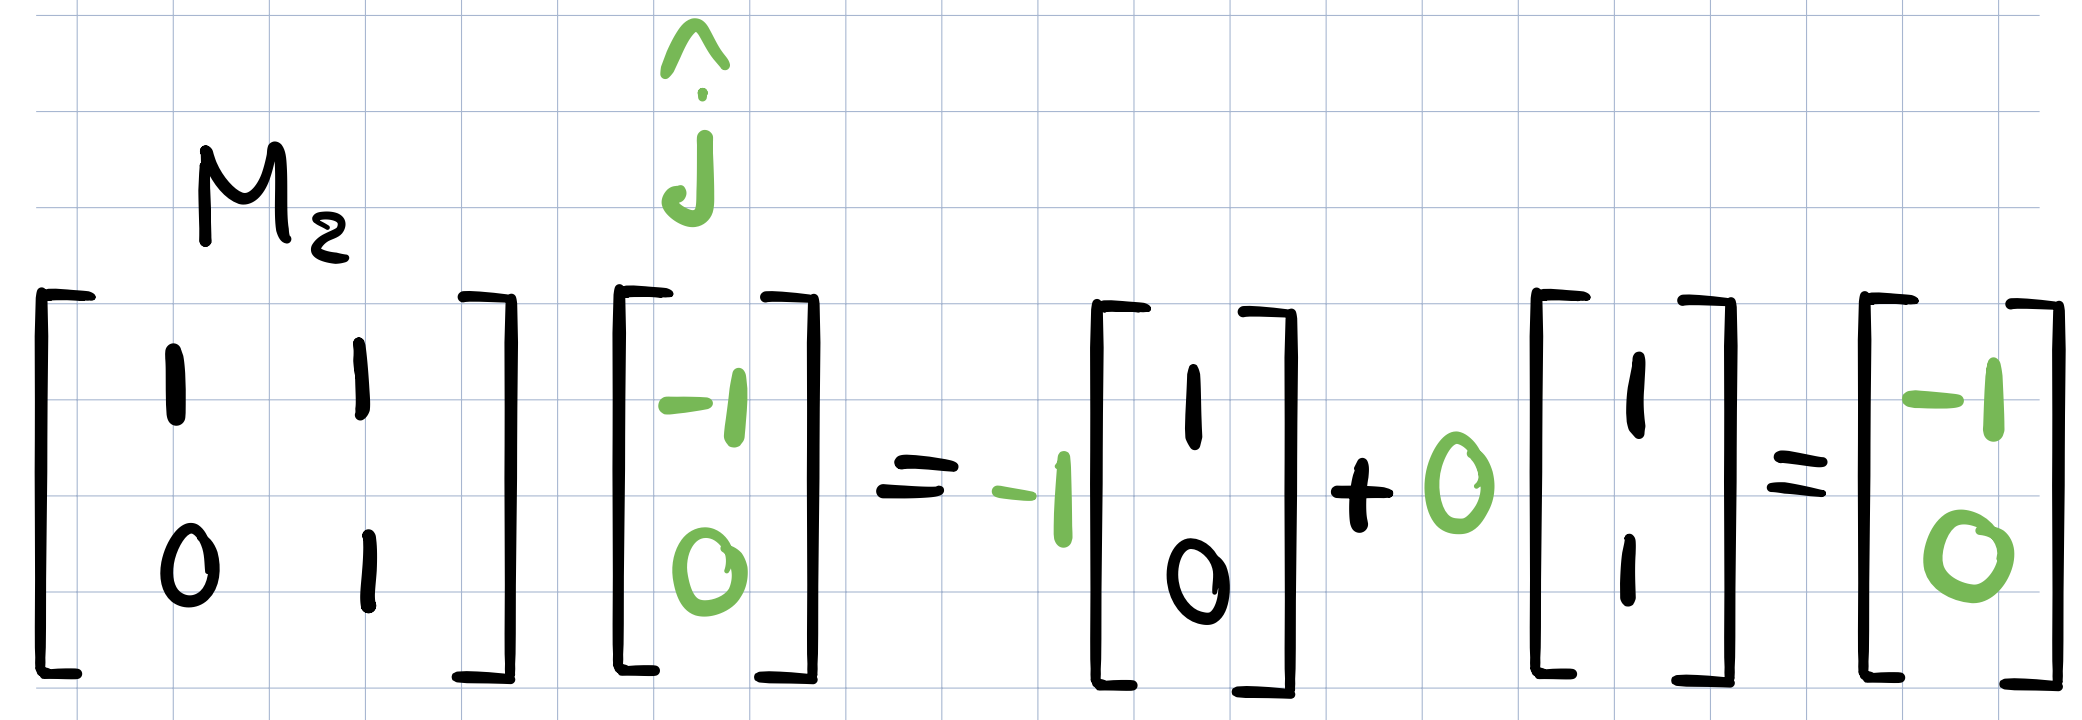 ĵ
M₂
[1 1; 0 1] [-1; 0] = -1 [1; 0] + 0 [1; 1] = [-1; 0]